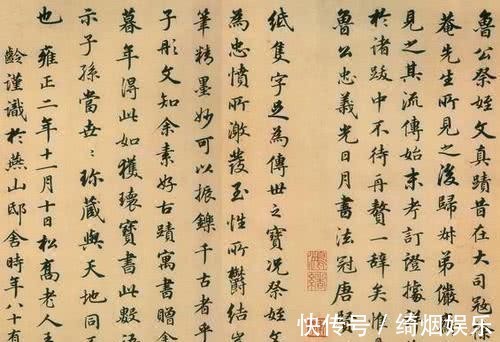 魯公祭姪文真蹟昔在大司寇徐
菴先生所見之後歸弟儼
見之其流傳始末考訂證據
於諸跋中不待再贅一辭矣惟
魯公忠義光日月書法冠唐
紙隻字足為傳世之寶況祭姪
為忠憤所激發至性所鬱結
筆精墨妙可以振鑠千古者乎
子彤文知余素好古蹟寓書贈余
暮年得此如獲瓌寶書此數語
示子孫當世〻珍藏與天地同
也雍正二年十一月十日松喬老人王
齡謹識於燕山邸舍時年八十有
快传号 / 绮烟娱乐